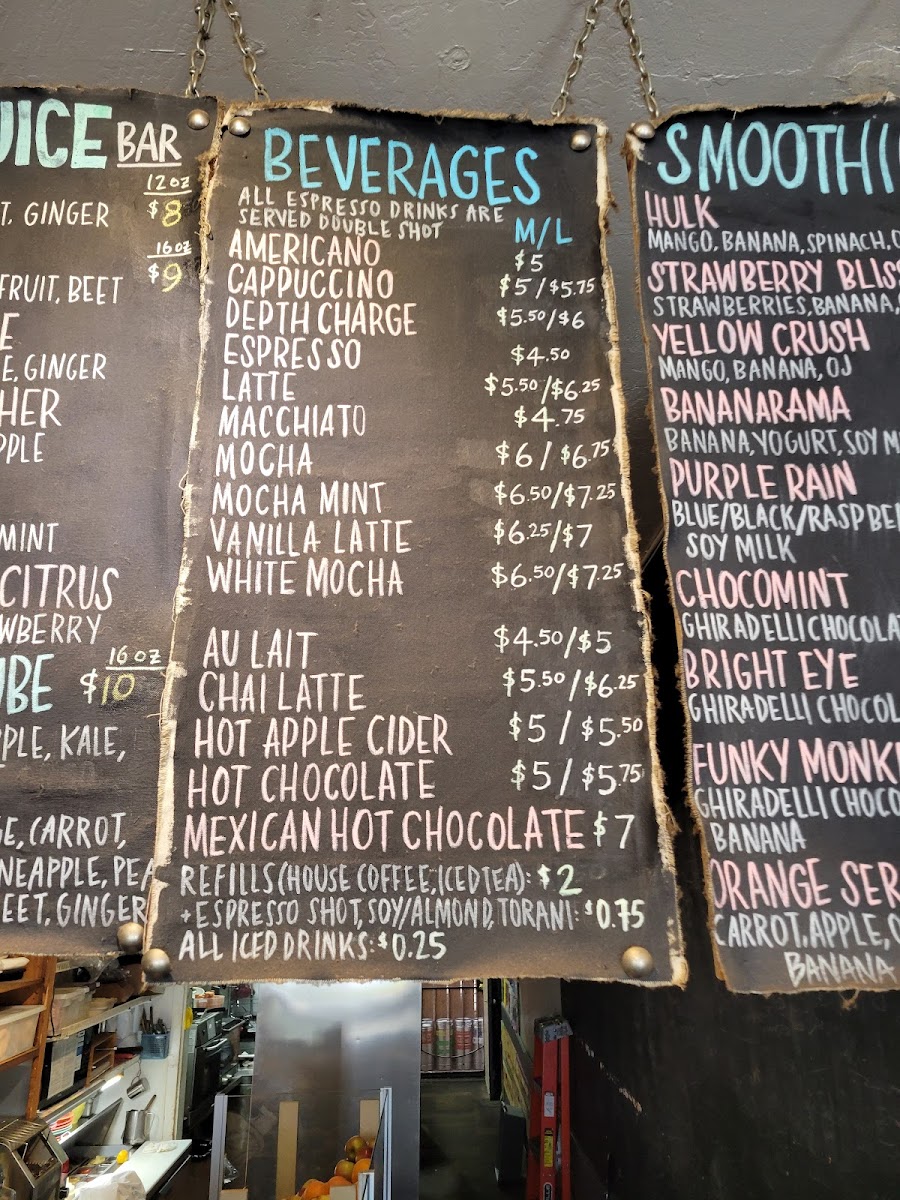 JUICE BAR
12 OZ
GINGER $8
16 OZ
$9
FRUIT, BEET
GINGER
APPLE
MINT
CITRUS
16 OZ
$10
KALE,
CARROT,
BEET, GINGER
BEVERAGES
ALL ESPRESSO DRINKS ARE
SERVED DOUBLE SHOT M/L
AMERICANO $5
CAPPUCCINO $5/$5.75
DEPTH CHARGE $5.50/$6
ESPRESSO $4.50
LATTE $5.50/$6.25
MACCHIATO $4.75
MOCHA $6/$6.75
MOCHA MINT $6.50/$7.25
VANILLA LATTE $6.25/$7
WHITE MOCHA $6.50/$7.25
AU LAIT $4.50/$5
CHAI LATTE $5.50/$6.25
HOT APPLE CIDER $5/$5.50
HOT CHOCOLATE $5/$5.75
MEXICAN HOT CHOCOLATE $7
REFILLS (HOUSE COFFEE, ICED TEA): $2
+ESPRESSO SHOT, SOY/ALMOND, TORANI: $0.75
ALL ICED DRINKS: $0.25
SMOOTHI
HULK
MANGO, BANANA, SPINACH,
STRAWBERRY BLISS
STRAWBERRIES, BANANA,
YELLOW CRUSH
MANGO, BANANA, OJ
BANANARAMA
BANANA, YOGURT, SOY MI
PURPLE RAIN
BLUE/BLACK/RASPBER
SOY MILK
CHOCOMINT
GHIRADELLI CHOCOLAT
BRIGHT EYE
GHIRADELLI CHOCOL
FUNKY MONKE
GHIRADELLI CHOCO
BANANA
ORANGE SER
CARROT, APPLE, O
BANANA